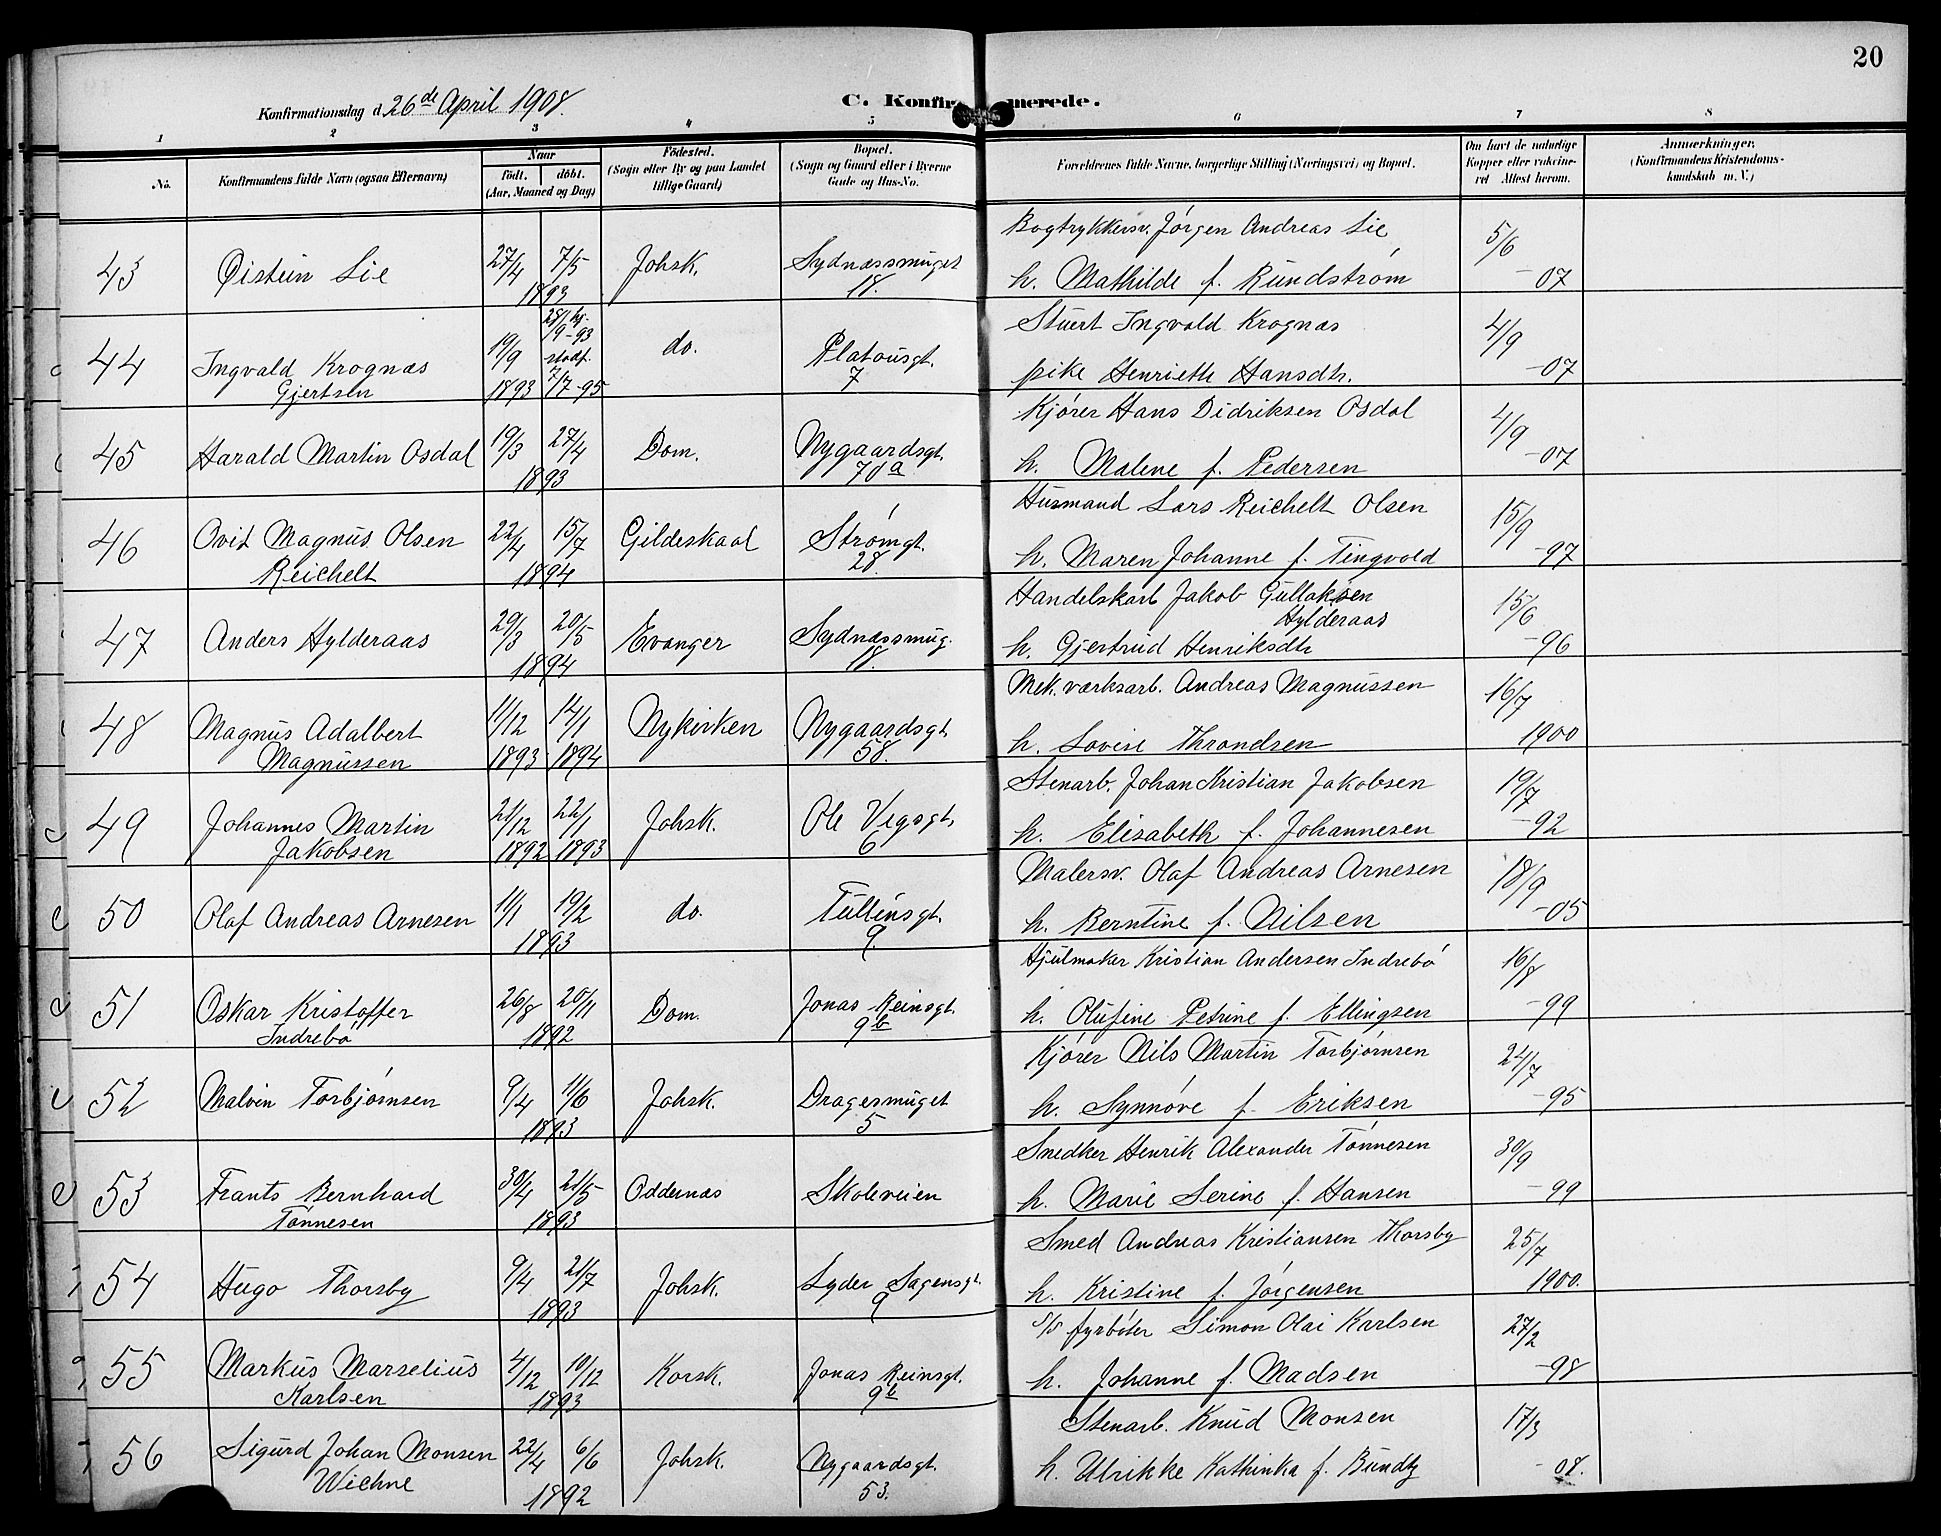 20
C. Konfirmerede.
Konfirmationsdag d. 26de April 1908.
1 2 3 4 5 6 7 8
No.
Konfirmandens fulde Navn (ogsaa Efternavn)
Naar
født. døbt.
(Aar, Maaned og Dag)
Fødested.
(Sogn eller By og paa Landet
tillige Gaard)
Bopæl.
(Sogn og Gaard eller i Byerne
Gade og Hus-No.
Forældrenes fulde Navne, borgerlige Stilling (Næringsvei) og Bopæl.
Om havt de naturlige
Kopper eller vakcine-
ret Attest herom.
Anmærkninger.
(Konfirmandens Kristendoms-
kundskab m. V.)
Bogtrykkersv. Jørgen Andreas Lie
43 Øistein Lie 27/4 7/5 Johsk. Sydnæssmuget 5/6
1893 18. h. Mathilde f. Rundstrøm -07
28/9-93
Stuert Ingvald Krognæs
44 Ingvald Krognæs 19/9 do. Platousgt. 4/9
Gjertsen 1893 7/7-95 7 pike Henriette Hansdtr. -07
Kjører Hans Didriksen Osdal
45 Harald Martin Osdal 19/3 27/4 Dom. Nygaardsgt. 4/9
1893 70a h. Malene f. Pedersen -07
Husmand Lars Reichelt Olsen
46 Ovit Magnus Olsen 22/4 15/7 Gildeskaal Strømgt. 15/9
Reichelt 1894 28. h. Maren Johanne f. Tingvold -97
Handelskarl Jakob Gullaksen
Hylderaas
47 Anders Hylderaas 29/3 20/5 Evanger Sydnæssmug. 15/6
1894 18. h. Gjertrud Henriksdtr -96
Mek. værksarb. Andreas Magnussen
48 Magnus Adalbert 11/12 14/1 Nykirken Nygaardsgt. 16/7
Magnussen 1893 1894 58. h. Lovise Throndsen 1900
Stenarb. Johan Kristian Jakobsen
49 Johannes Martin 21/12 22/1 Johsk. Ole Vigsgt. 19/7
Jakobsen 1892 1893 6 h. Elisabeth f. Johannesen -92
Malersv. Olaf Andreas Arnesen
50 Olaf Andreas Arnesen 11/1 19/2 do. Tullinsgt. 18/9
1893 9. h. Berntine f. Nilsen -05
Hjulmaker Kristian Andersen Indrebø
51 Oskar Kristoffer 26/8 20/11 Dom. Jonas Reinsgt. 16/8
Indrebø 1892 9b h. Olufine Petrine f. Ellingsen -99
Kjører Nils Martin Torbjørnsen
52 Malvin Torbjørnsen 9/4 11/6 Johsk. Dragesmuget 24/7
1893 5 h. Synnøve f. Eriksen -95
Snedker Henrik Alexander Tønnesen
53 Frants Bernhard 30/4 21/5 Oddernæs Skoleveien 30/9
Tønnesen 1893 h. Marie Serine f. Hansen -99
Smed Andreas Kristiansen Thorsby
54 Hugo Thorsby 9/4 21/7 Johsk. Lyder Sagensgt. 25/7
1893 9 h. Kristine f. Jørgensen 1900.
s/s fyrbøter Simon Olai Karlsen
55 Markus Marselius 4/12 10/12 Korsk. Jonas Reinsgt. 27/2
Karlsen 1893 9b h. Johanne f. Madsen -98
Stenarb. Knud Monsen
56 Sigurd Johan Monsen 22/4 6/6 Johsk. Nygaardsgt. 17/3
Wichne 1892 53. h. Ulrikke Kathinka f. Bundtz -08.